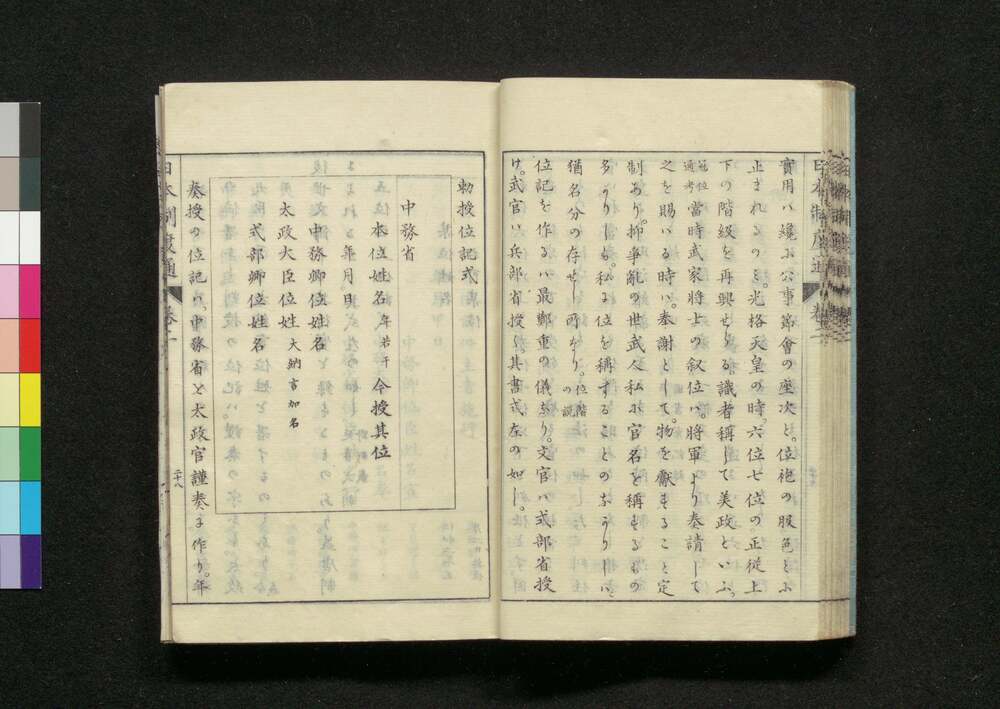 實用ハ纔ニ公事節會の座次と。位袍の服色とニ
止まれるのミ。光格天皇の時。六位七位の正從上
下の階級を再興せらる識者稱して美政といふ。
冠位通考
當時武家將士の叙位ハ。將軍より奏請して
之を賜ハる時ハ。奉謝として。物を獻ずること定
制あり。抑爭亂の世武人私に官名を稱するもの
多かりしも。私に位を稱することのなかりしハ。
猶名分の存せし所なり。位階の説
位記を作るハ最鄭重の儀なり。文官ハ式部省授
け。武官ハ兵部省授く。其書式左の如し。
勅授位記式
中務省
本位姓名 年若干 今授其位
年月日
中務卿位姓名
太政大臣位姓 大納言加名
式部卿位姓名
奏授の位記ハ。中務省と太政官謹奏と作り。年
日本制度通
卷二
二十八